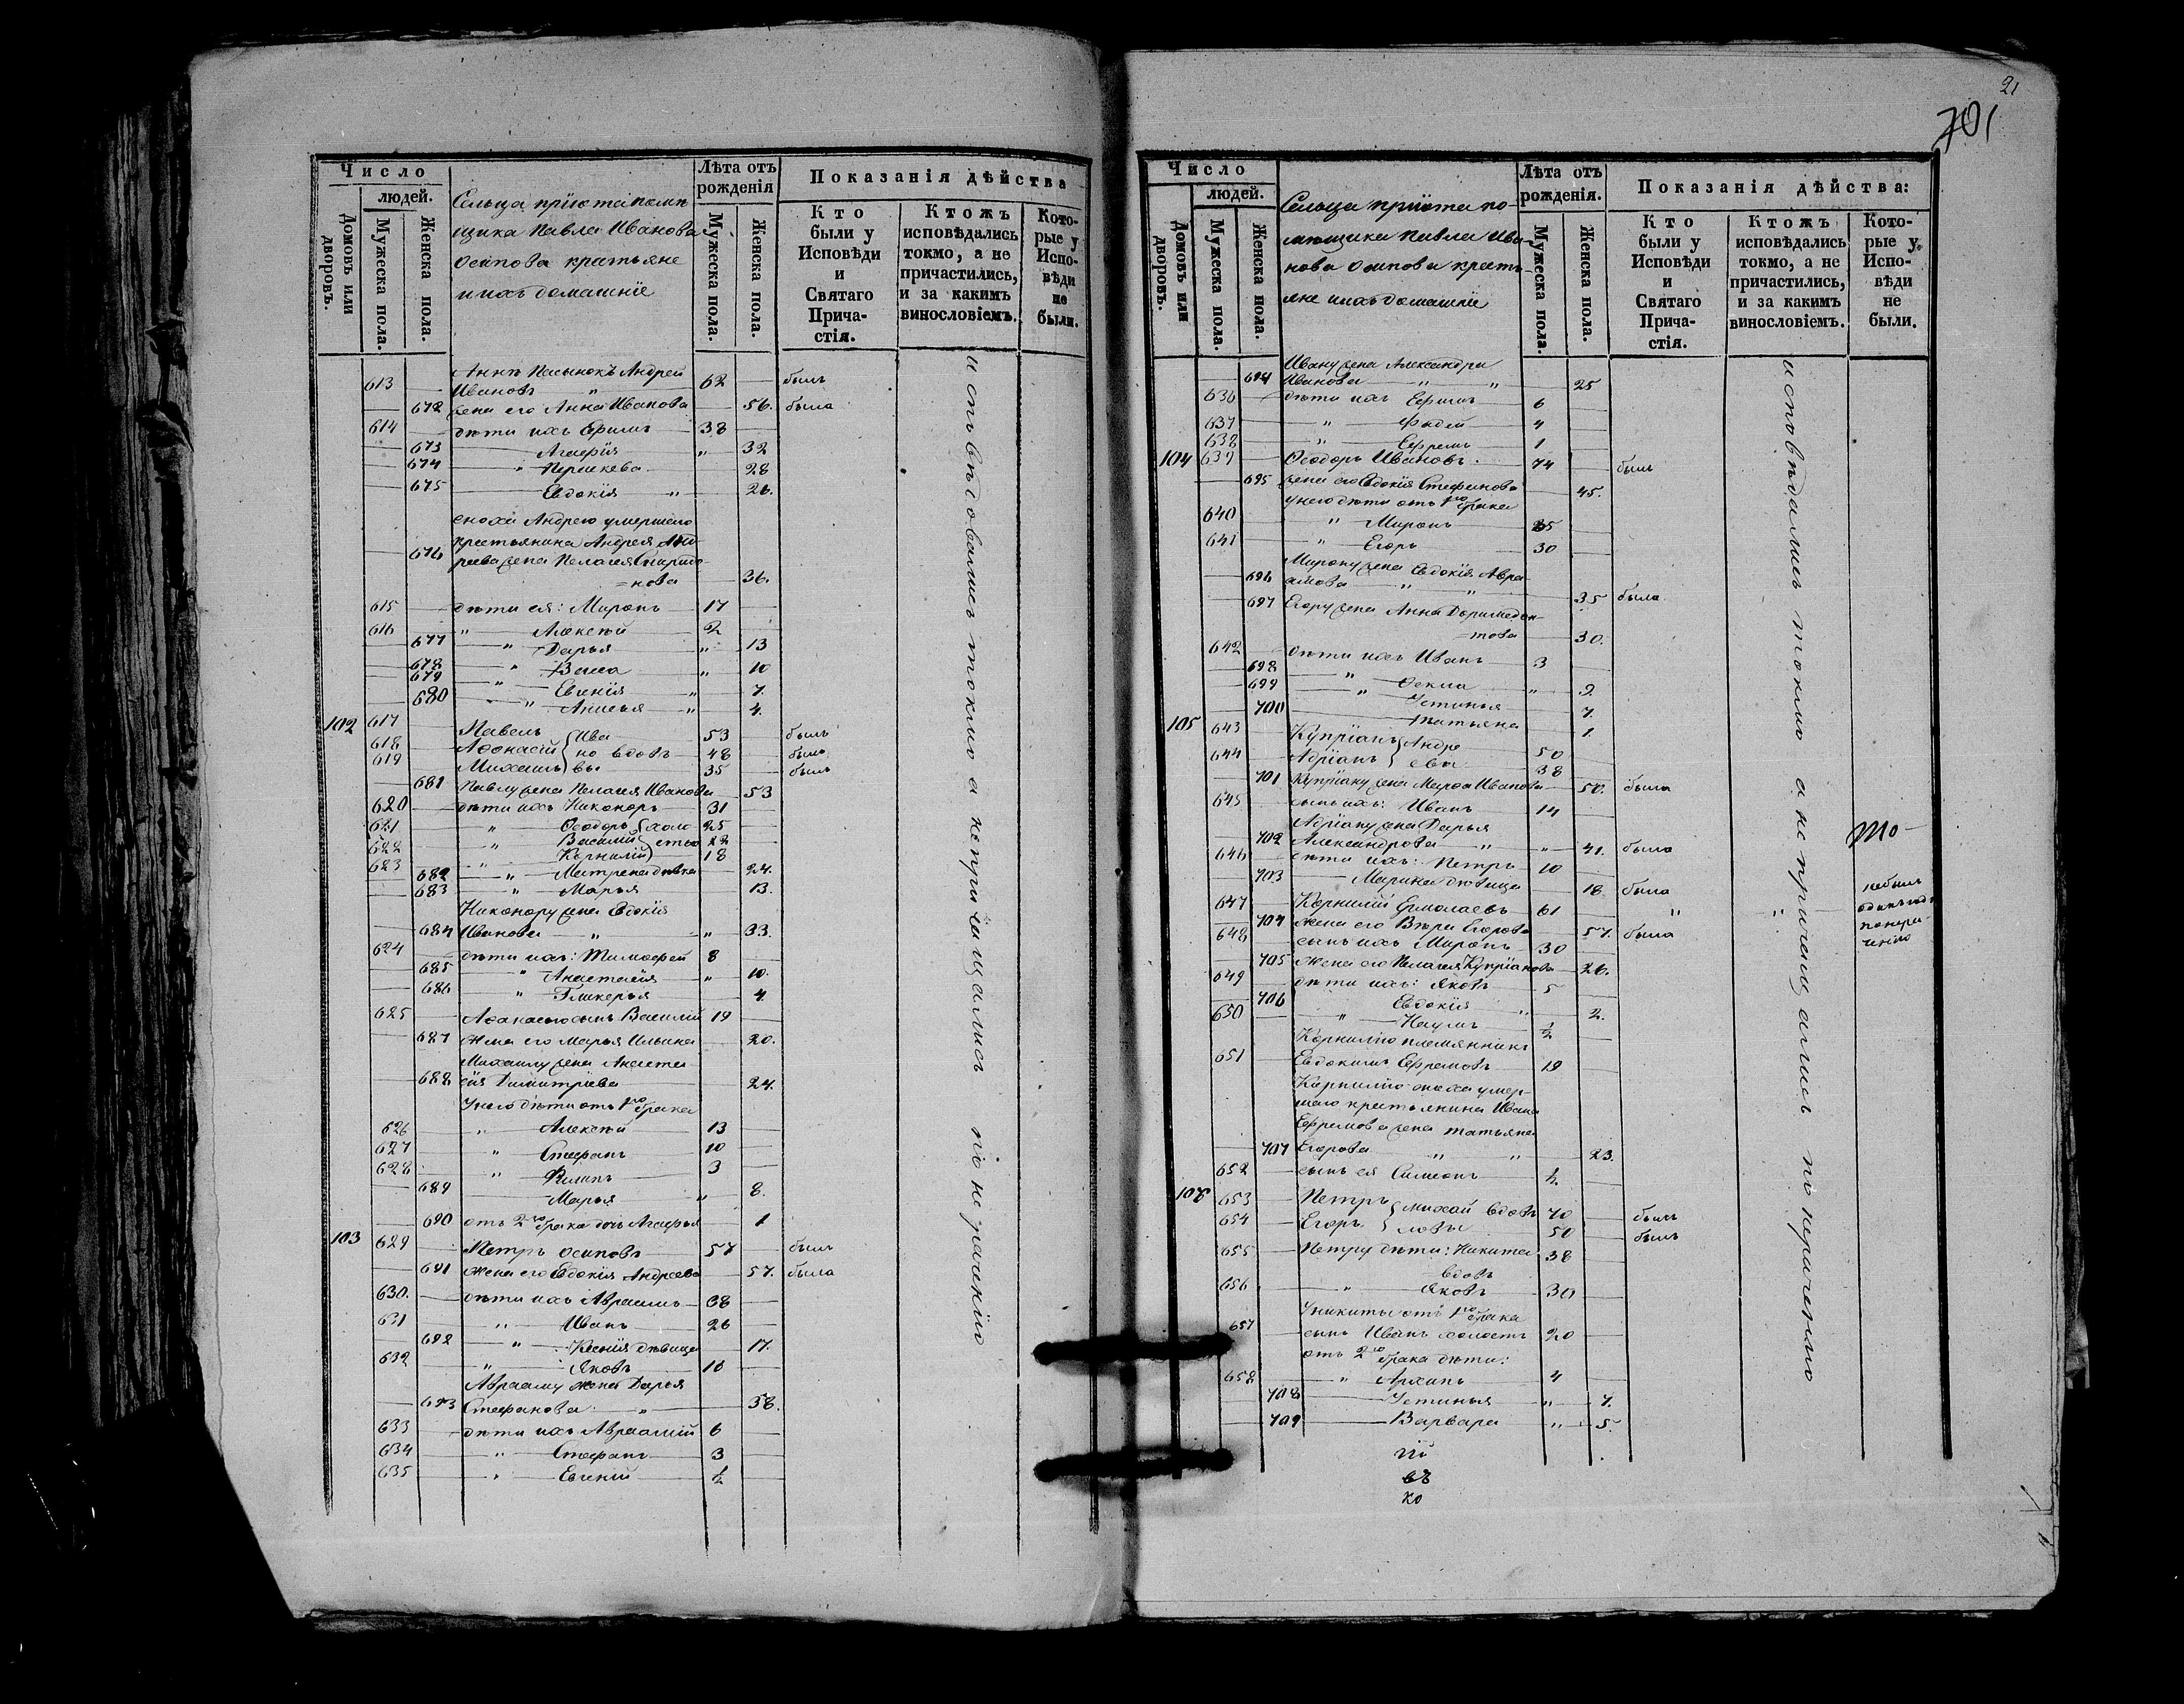 Число
людей.
Домовъ или дворовъ.
Мужеска пола.
Женска пола.
Сельца пріюта помѣ
щика Павла Иванова
Осипова крестьяне
и ихъ домашніе
Лѣта отъ
рожденія
Мужеска пола.
Женска пола.
Показанія дѣйства
Кто
были у
Исповѣди
и
Святаго
Прича-
стія.
Ктожъ
исповѣдались
токмо, а не
причастились,
и за какимъ
винословіемъ.
Кото-
рые у
Испо-
вѣди
не
были.
Аннѣ пасынокъ Андрей
613 Ивановъ " 62 былъ
672 жена его Анна Иванова 56. была
614 дѣти ихъ Ефимъ 38
673 Агафія " 32
674 " Параскева 28
675 Евдокія " 26.
сноха Андрею умершаго
крестьянина Андрея Анд
676 реева жена Пелагея Спиридо
=нова 36.
615 дѣти ея: Миронъ 17
616 " Алексѣй 2
677 " Дарья " 13
678 " Васса " 10
679 " Евгенія " 7.
680 " Анисья " 4.
102 617 Павелъ Ива 53 былъ
618 Аѳонасій но вдовъ 48 былъ
619 Михаилъ вы 35 былъ
681 Павлу жена Пелагея Иванова 53
620 дѣти ихъ Никоноръ 31
621 " Ѳеодоръ холо 25
622 " Василій стые 22
623 " Корнилій 18
682 " Матрена дѣвка 24.
683 " Марья 13.
Никонору жена Евдокія
684 Иванова " " 33.
624 дѣти ихъ: Тимоѳей 8
685 " Анастасія " 10.
686 " Гликерья 4.
625 Аѳанасью сынъ Василій 19
687 жена его Марья Ильина 20.
Михаилу жена Анаста
688 сія Димитріева 24.
У него дѣти отъ 1го брака
626 " Алексѣй 13
627 " Стефанъ 10
628 " Филипъ 3
689 Марья " 8.
690 отъ 2го брака дочь Агафья 1
103 629 Петръ Осиповъ 57 былъ
691 жена его Евдокія Андреева 57. была
630. дѣти ихъ Авраамъ 38
631 " Иванъ 26
692 " Ксенія дѣвица 17.
632 " Яковъ 10
Аврааму жена Дарья
693 Стефанова " 38.
633 дѣти ихъ Авраамій 6
634 " Стефанъ 3
635 " Евгеній ½
исповѣдовались токмо а непріащались по нераченію
21
701
Число
людей.
Домовъ или дворовъ.
Мужеска пола.
Женска пола.
Сельца пріюта по-
мѣщика Павла Ива-
нова Осипова кресть-
яне и ихъ домашніе
Лѣта отъ
рожденія.
Мужеска пола.
Женска пола.
Показанія дѣйства:
Кто
были у
Исповѣди
и
Святаго
Прича-
стія.
Ктожъ
исповѣдались
токмо, а не
причастились,
и за какимъ
винословіемъ.
Кото-
рые у
Испо-
вѣди
не
были.
Ивану жена Александра
694 Иванова " " 25
636 дѣти ихъ Ефимъ 6
637 " Фадей 4
638 " Ефремъ 1
104 639 Ѳеодоръ Ивановъ. 74 былъ
695 жена его Евдокія Стефанова 45.
у него дѣти отъ 1го брака
640 " Миронъ 35
641 " Егоръ 30
Мирону жена Евдокія Авра
696 амова " " 35 была
697 Егору жена Анна Доримедон-
=това 30.
642 дѣти ихъ Иванъ 3
698 " Ѳекла " 9.
699 " Устинья 7.
700 Татьяна 1.
105 643 Купріанъ Андре 50
644 Адріанъ евы 38
701 Купріану жена Марѳа Иванова 50. была
645 сынъ ихъ: Иванъ 14
Адріану жена Дарья
702 Александрова " " 41. была
646 дѣти ихъ: Петръ 10
703 Марина дѣвица 18. была
647 Корнилій Ермолаевъ 61 " " не былъ
одинъ годъ
по нера-
ченію
704 жена его Вѣра Егорова 57. была
648 сынъ ихъ Миронъ 30
705 жена его Пелагея Купріанова 26.
649 дѣти ихъ: Яковъ 5
706 Евдокія " 2.
650 " Наумъ ½
Корнилію племянникъ
651 Евдокимъ Ефремовъ 19
Корнилію сноха умер-
шаго крестьянина Ивана
Ефремова жена Татьяна
707 Егорова " " 23.
652 сынъ ея Симеонъ ½.
106 653 Петръ Михай вдовъ 70 былъ
654 Егоръ ловы 50 былъ
655 Петру дѣти: Никита 38
вдовъ
656 " Яковъ 30
У Никиты отъ 1го брака
657 сынъ Иванъ холостъ 20
отъ 2го брака дѣти:
658 " Архипъ 4
708 Устинья " 7.
709 Варвара " 5.
исповѣдались токмо а не причащались по нераченію